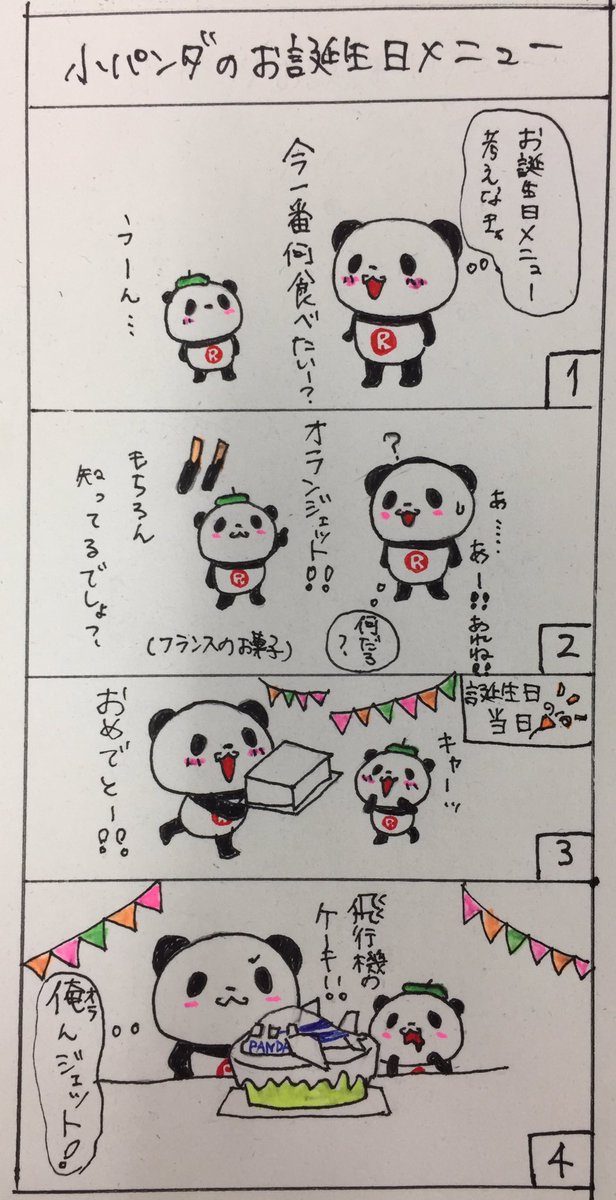 小パンダのお誕生日メニュー
お誕生日メニュー
考えなきゃ
今一番何食べたいー?
うーん…
R
R
1
あ……
あー!!あれね!!
?
何だろ
?
オランジェット!!
もちろん
知ってるでしょ?
(フランスのお菓子)
R
R
2
誕生日の
当日
キャーッ
おめでとー!!
R
R
3
飛行機の
ケーキ!!
オラ
俺んジェット!
PANDA
R
R
4